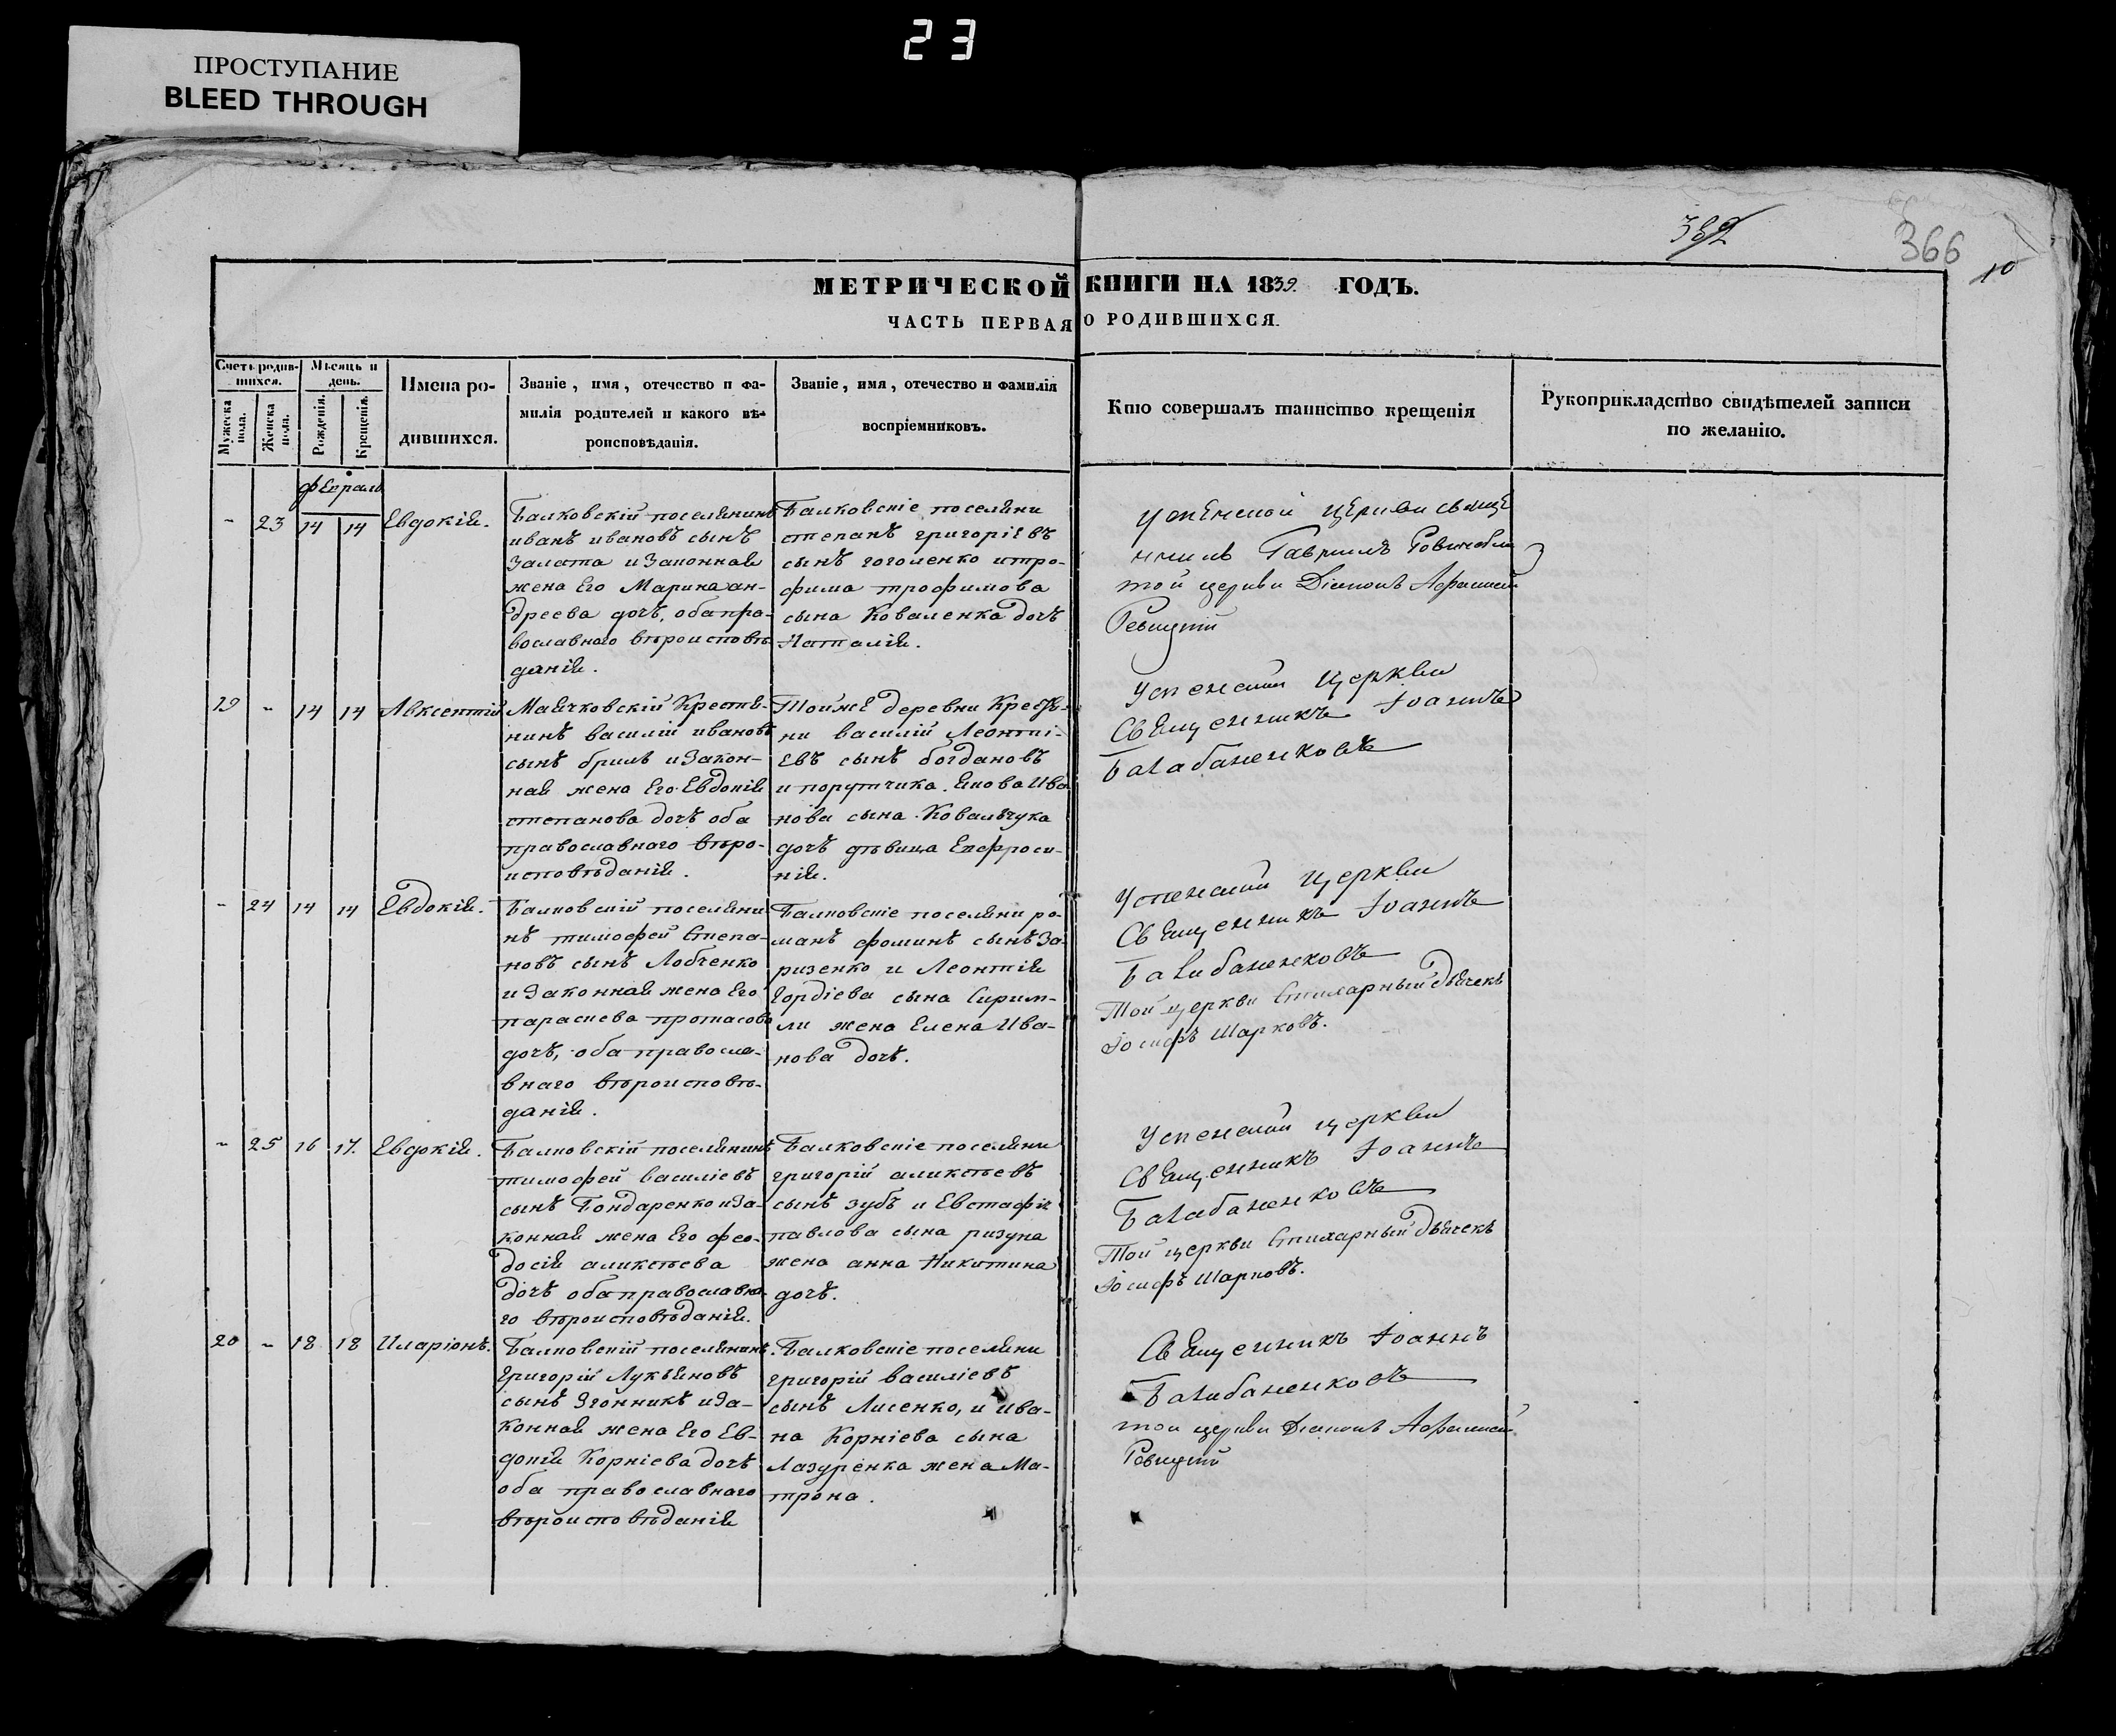 23
ПРОСТУПАНИЕ
BLEED THROUGH
366
10
МЕТРИЧЕСКОЙ КНИГИ НА 1839. ГОДЪ.
ЧАСТЬ ПЕРВАЯ О РОДИВШИХСЯ.
Счетъ родив-
шихся.
Мужеска
пола.
Женска
пола.
Мѣсяцъ и
день.
Рожденія.
Крещенія.
Имена ро-
дившихся.
Званіе, имя, отечество и фа-
милія родителей и какого вѣ-
роисповѣданія.
Званіе, имя, отечество и фамилія
воспріемниковъ.
Кто совершалъ таинство крещенія
Рукоприкладство свидѣтелей записи
по желанію.
февраль
- 23 14 14 Евдокія.
Балковскій поселянинъ
иванъ ивановъ сынъ
Залата и Законная
жена Его Марина ан-
дреева дочь, оба пра-
вославнаго вѣроисповѣ
данія.
Балковскіе поселяни
степанъ григоріевъ
сынъ гоголенко и тро-
фима трофимова
сына Коваленка дочь
Наталія.
Успенской церкви свяще
нникъ Гавріилъ
той церкви Діаконъ Афанасій
Ревицкій
19 - 14 14 Авксентій
Маячковскій Крестя-
нинъ василій ивановъ
сынъ бриль и Закон-
ная жена Его Евдокія
степанова дочь оба
православнаго вѣро-
исповѣданія.
Той же деревни Крестя-
ни василій Леонті-
евъ сынъ богдановъ
и порутчика Ива
нова сына Ковальчука
дочь дѣвица Епфроси-
нія.
Успенской церкви
Священникъ Іоаннъ
Балабаненковъ
- 24 14 14 Евдокія.
Балковскій поселяни
нъ тимофей Степа-
новъ сынъ Лобченко
и Законная жена Его
параскева протасова
дочь, оба правосла-
внаго вѣроисповѣ-
данія.
Балковскіе поселяни ро-
манъ фоминъ сынъ За-
ризенко и Леонтія
Гордіева сына
ли жена Елена Ива-
нова дочь.
Успенской церкви
Священникъ Іоаннъ
Балабаненковъ
Той церкви Стихарный Дьячекъ
Іосифъ Шарковъ.
- 25 16 17. Евдокія.
Балковскій поселянинъ
тимофей василіевъ
сынъ Бондаренко и За-
конная жена Его фео-
досія аликсѣева
дочь оба православна-
го вѣроисповѣданія.
Балковскіе поселяни
григорій аликсѣевъ
сынъ зубъ и Евстафія
павлова сына ризуна
жена анна Никитина
дочь.
Успенской церкви
Священникъ Іоаннъ
Балабаненковъ
Той церкви Стихарный Дьячекъ
Іосифъ Шарковъ.
20 - 18 18 Иларіонъ.
Балковскій поселянинъ.
Григорій Лукьяновъ
сынъ Згонникъ и За-
конная жена Его Ев-
докія Корніева дочь
оба православнаго
вѣроисповѣданія
Балковскіе поселяни
григорій василіевъ
сынъ Лисенко, и ива-
на Корніева сына
Лазуренка жена Ма-
трона.
Священникъ Іоаннъ
Балабаненковъ
той церкви Діаконъ Афанасій
Ревицкій